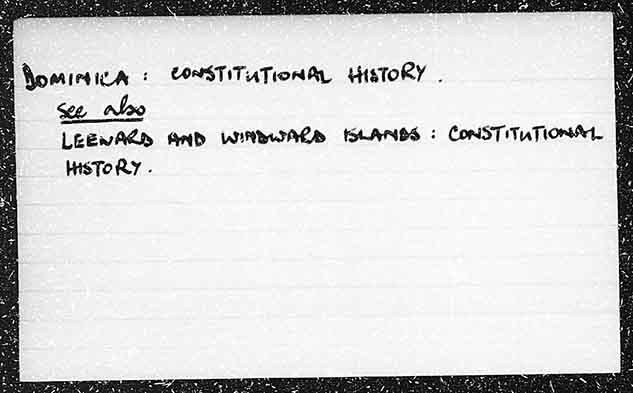 DOMINICA : CONSTITUTIONAL HISTORY .
see also
LEEWARD AND WINDWARD ISLANDS : CONSTITUTIONAL
HISTORY .